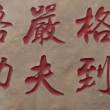 嚴格
功夫到